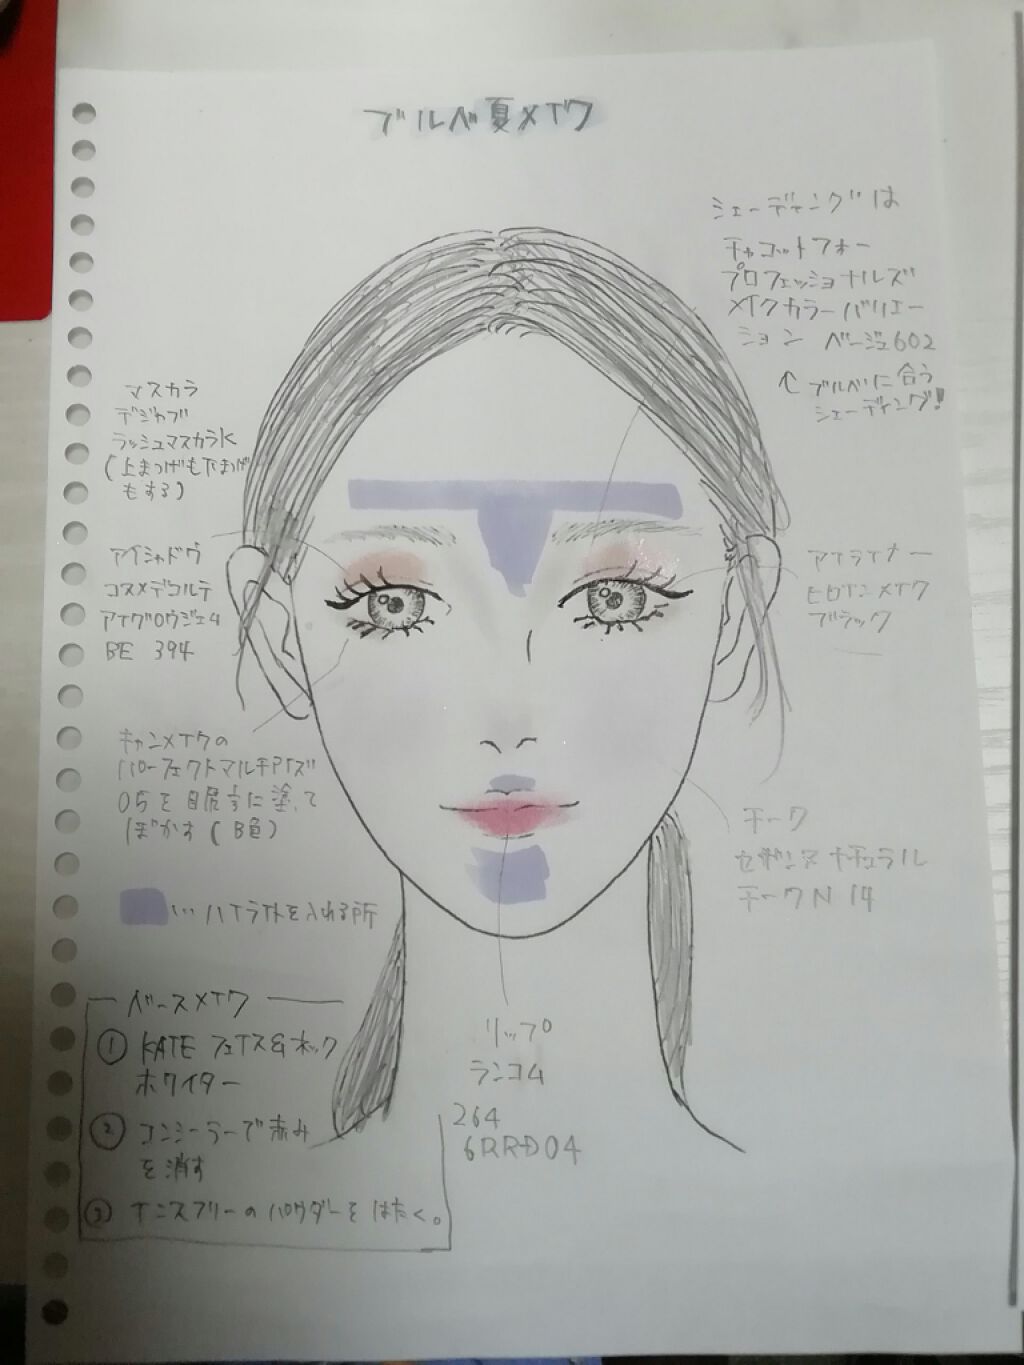 ブルベ夏メイク
シェーディングは
チャコットフォー
プロフェッショナルズ
メイクカラーバリエー
ション ベージュ602
↑ブルベに合う
シェーディング!
マスカラ
デジャヴ
ラッシュマスカラK
(上まつげも下まつげ
もする)
アイシャドウ
コスメデコルテ
アイグロウジェム
BE 394
アイライナー
ヒロインメイク
ブラック
キャンメイクの
パーフェクトマルチアイズ
05を目尻に塗って
ぼかす(B色)
チーク
セザンヌ ナチュラル
チークN 14
…ハイライトを入れる所
ベースメイク
① KATE フェイス&ネック
ホワイター
② コンシーラーで赤み
を消す
③ イニスフリーのパウダーをはたく。
リップ
ランコム
264